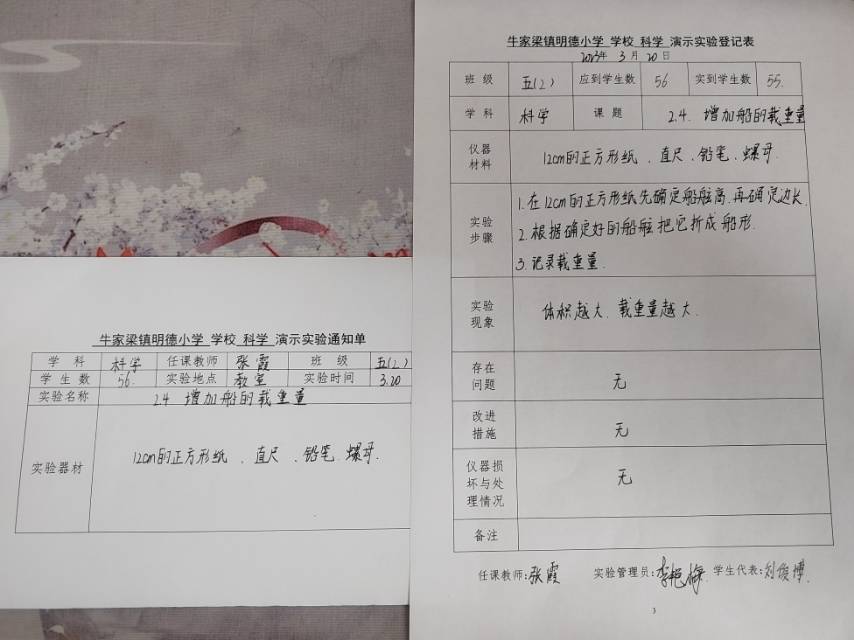 牛家梁镇明德小学 学校 科学 演示实验通知单
学科 科学 任课教师 张霞 班级 五(2)
学生数 56. 实验地点 教室 实验时间 3.20
实验名称 2.4 增加船的载重量
实验器材 12cm的正方形纸、直尺、铅笔、螺母.
牛家梁镇明德小学 学校 科学 演示实验登记表
2023年 3月 20日
班级 五(2) 应到学生数 56 实到学生数 55.
学科 科学 课题 2.4. 增加船的载重量
仪器
材料
12cm的正方形纸、直尺、铅笔、螺母.
实验
步骤
1.在12cm的正方形纸先确定船舷高.再确定边长.
2.根据确定好的船舷把它折成船形.
3.记录载重量.
实验
现象
体积越大、载重量越大.
存在
问题
无
改进
措施
无
仪器损
坏与处
理情况
无
备注
任课教师:张霞 实验管理员: 学生代表:刘俊博.
3